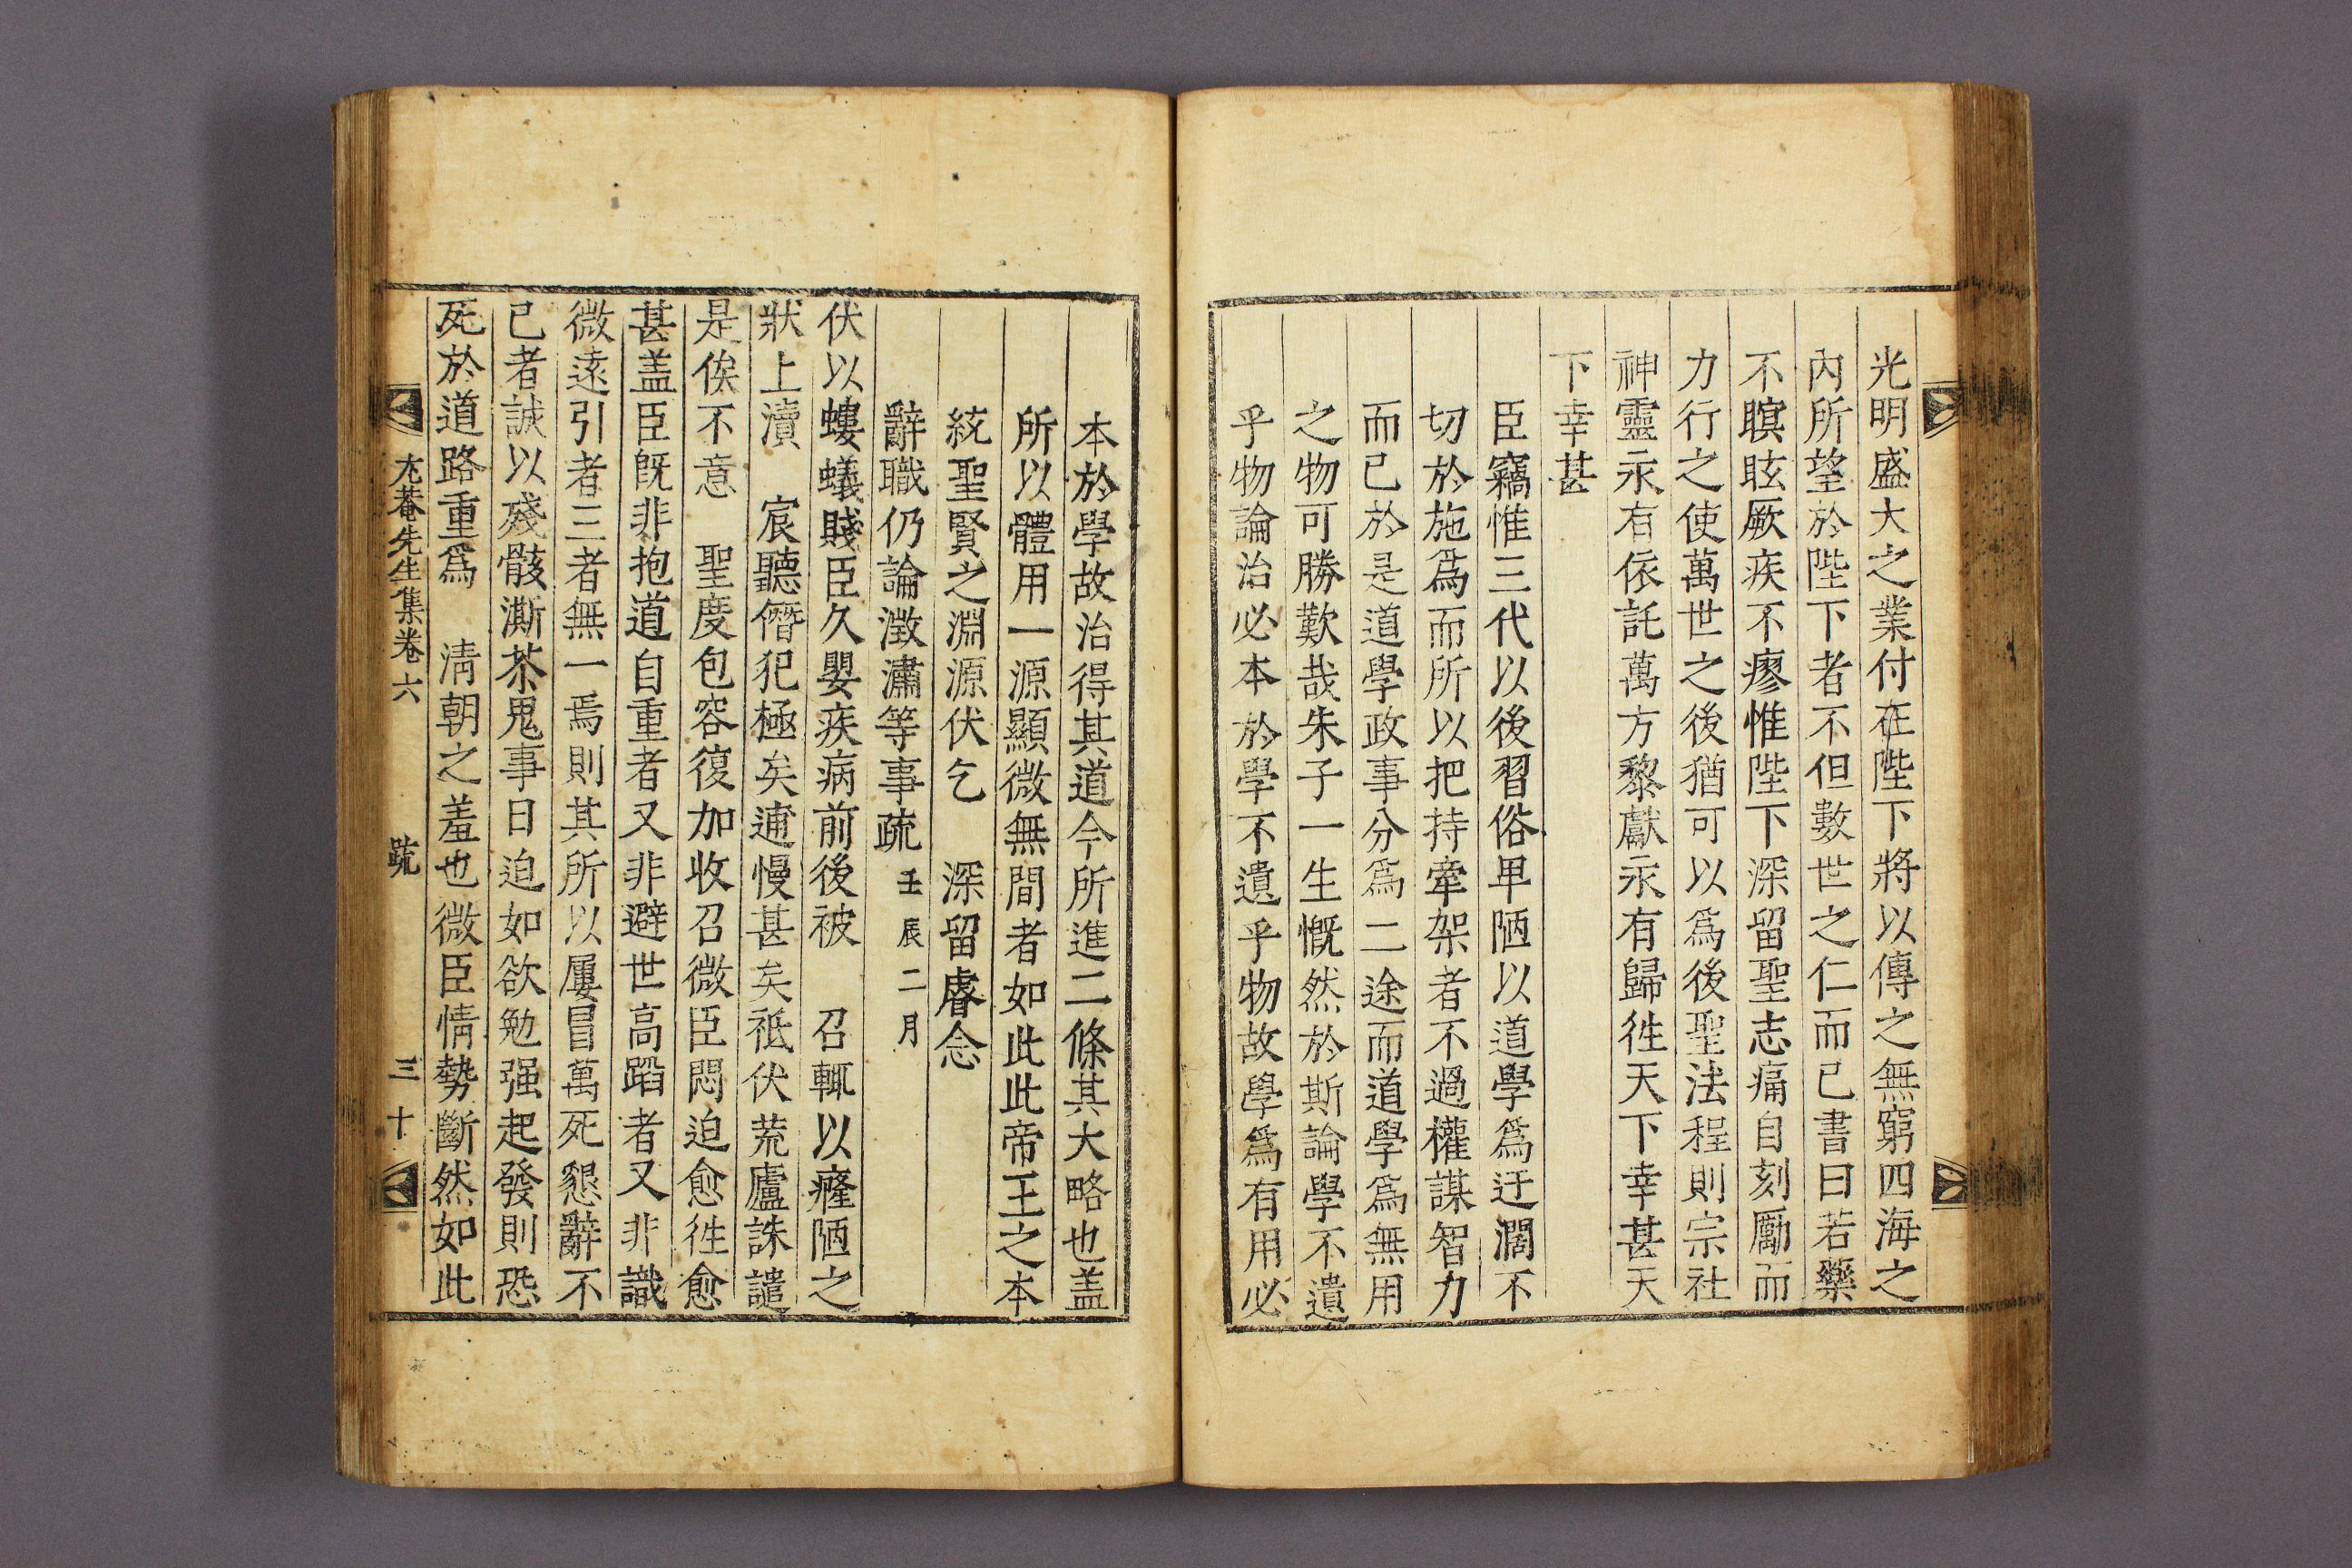 光明盛大之業付在陛下將以傳之無窮四海之
內所望於陛下者不但數世之仁而已書曰若藥
不瞑眩厥疾不瘳惟陛下深留聖志痛自刻勵而
力行之使萬世之後猶可以爲後聖法程則宗社
神靈永有依託萬方黎獻永有歸徃天下幸甚天
下幸甚
臣竊惟三代以後習俗卑陋以道學爲迂濶不
切於施爲而所以把持牽架者不過權謀智力
而已於是道學政事分爲二途而道學爲無用
之物可勝歎哉朱子一生慨然於斯論學不遺
乎物論治必本於學不遺乎物故學爲有用必
本於學故治得其道今所進二條其大略也盖
所以體用一源顯微無間者如此此帝王之本
統聖賢之淵源伏乞 深留睿念
辭職仍論澂潚等事疏 壬辰二月
伏以螻蟻賤臣久嬰疾病前後被 召輒以癃陋之
狀上瀆 宸聽僭犯極矣逋慢甚矣祗伏荒廬誅譴
是俟不意 聖度包容復加收召微臣悶迫愈徃愈
甚盖臣旣非抱道自重者又非避世高蹈者又非識
微遠引者三者無一焉則其所以屢冒萬死懇辭不
已者誠以殘骸澌茶鬼事日迫如欲勉强起發則恐
死於道路重爲 淸朝之羞也微臣情勢斷然如此
尤菴先生集卷六 疏 三十